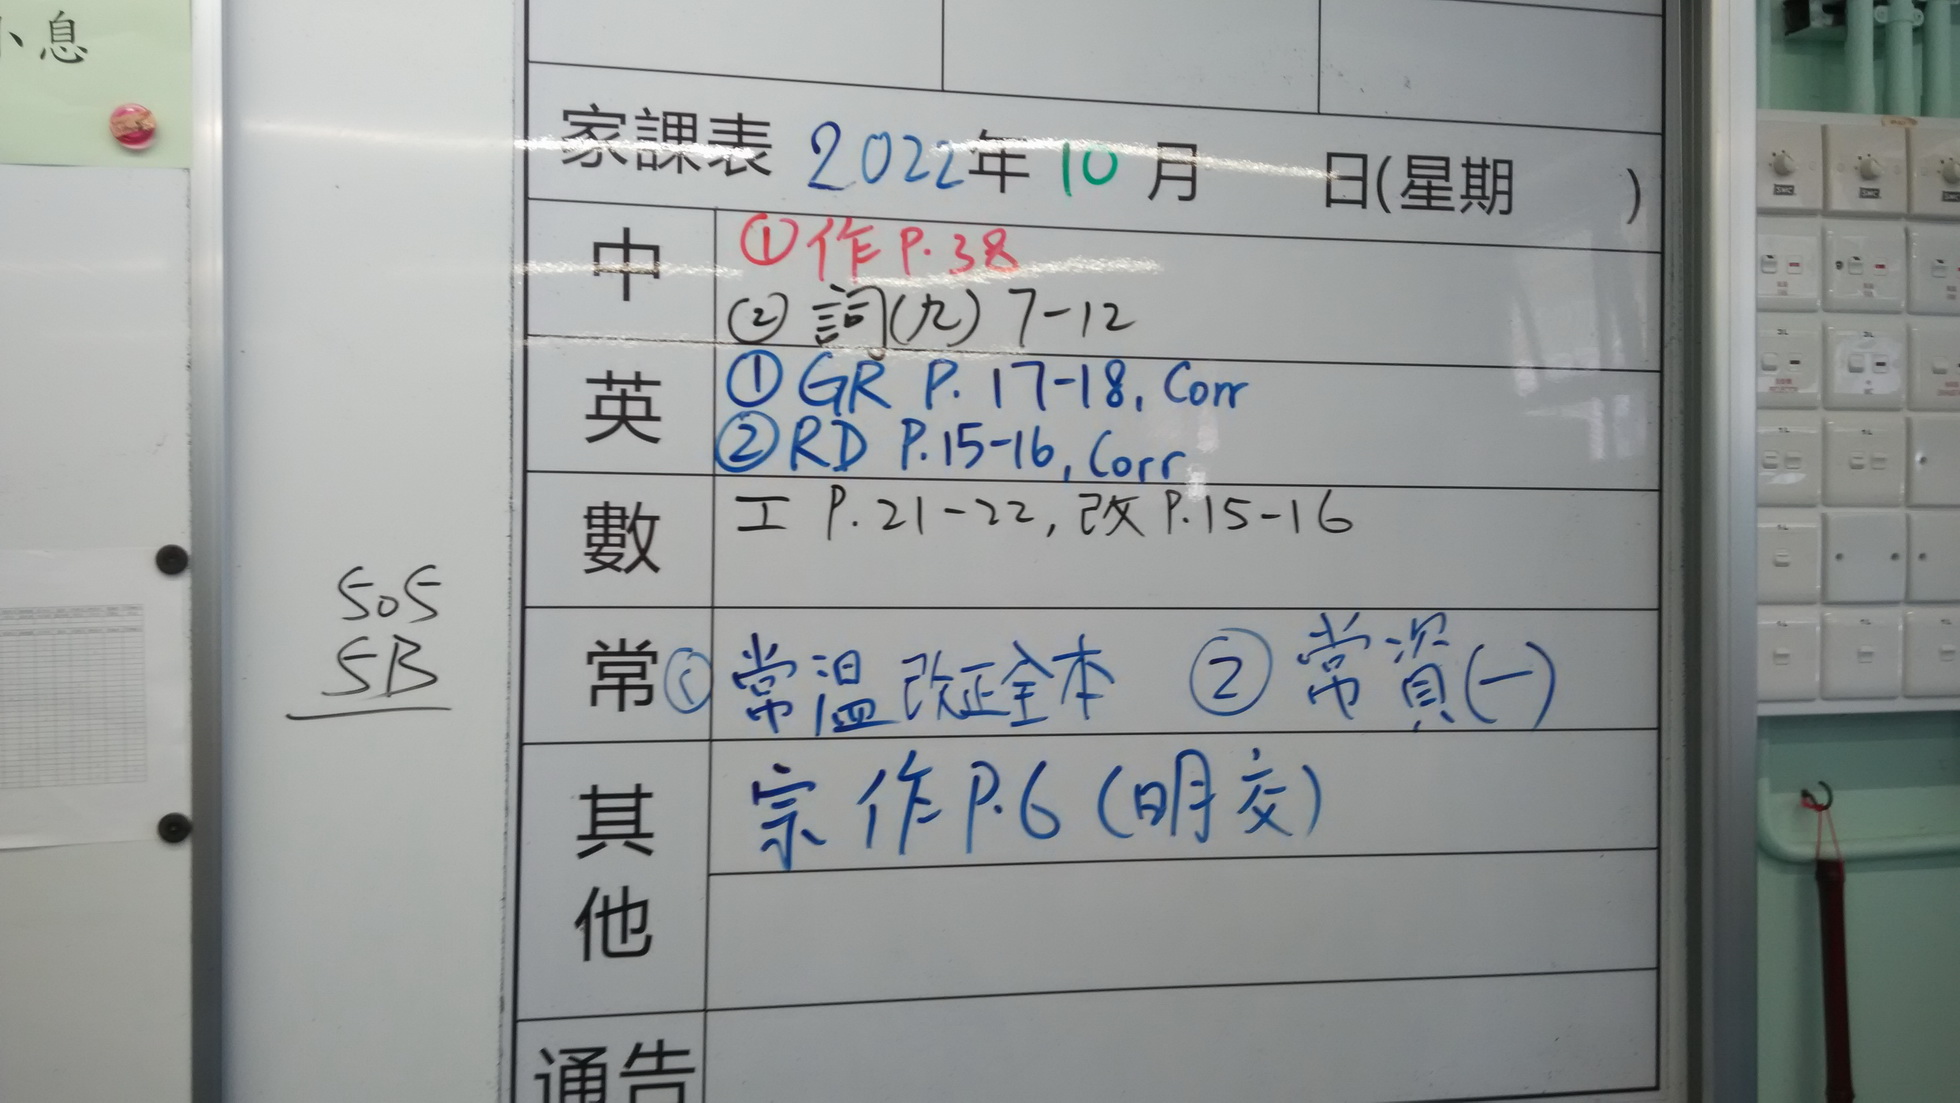 小息
家課表 2022年 10月 日(星期 )
中
①作 P.38
② 詞(九) 7-12
英
① GR P. 17-18, Corr
② RD P.15-16, Corr
數
工 P.21-22, 改 P.15-16
常
① 常溫 改正全本 ② 常資(一)
505
5B
其他
宗 作 P.6 (明交)
通告